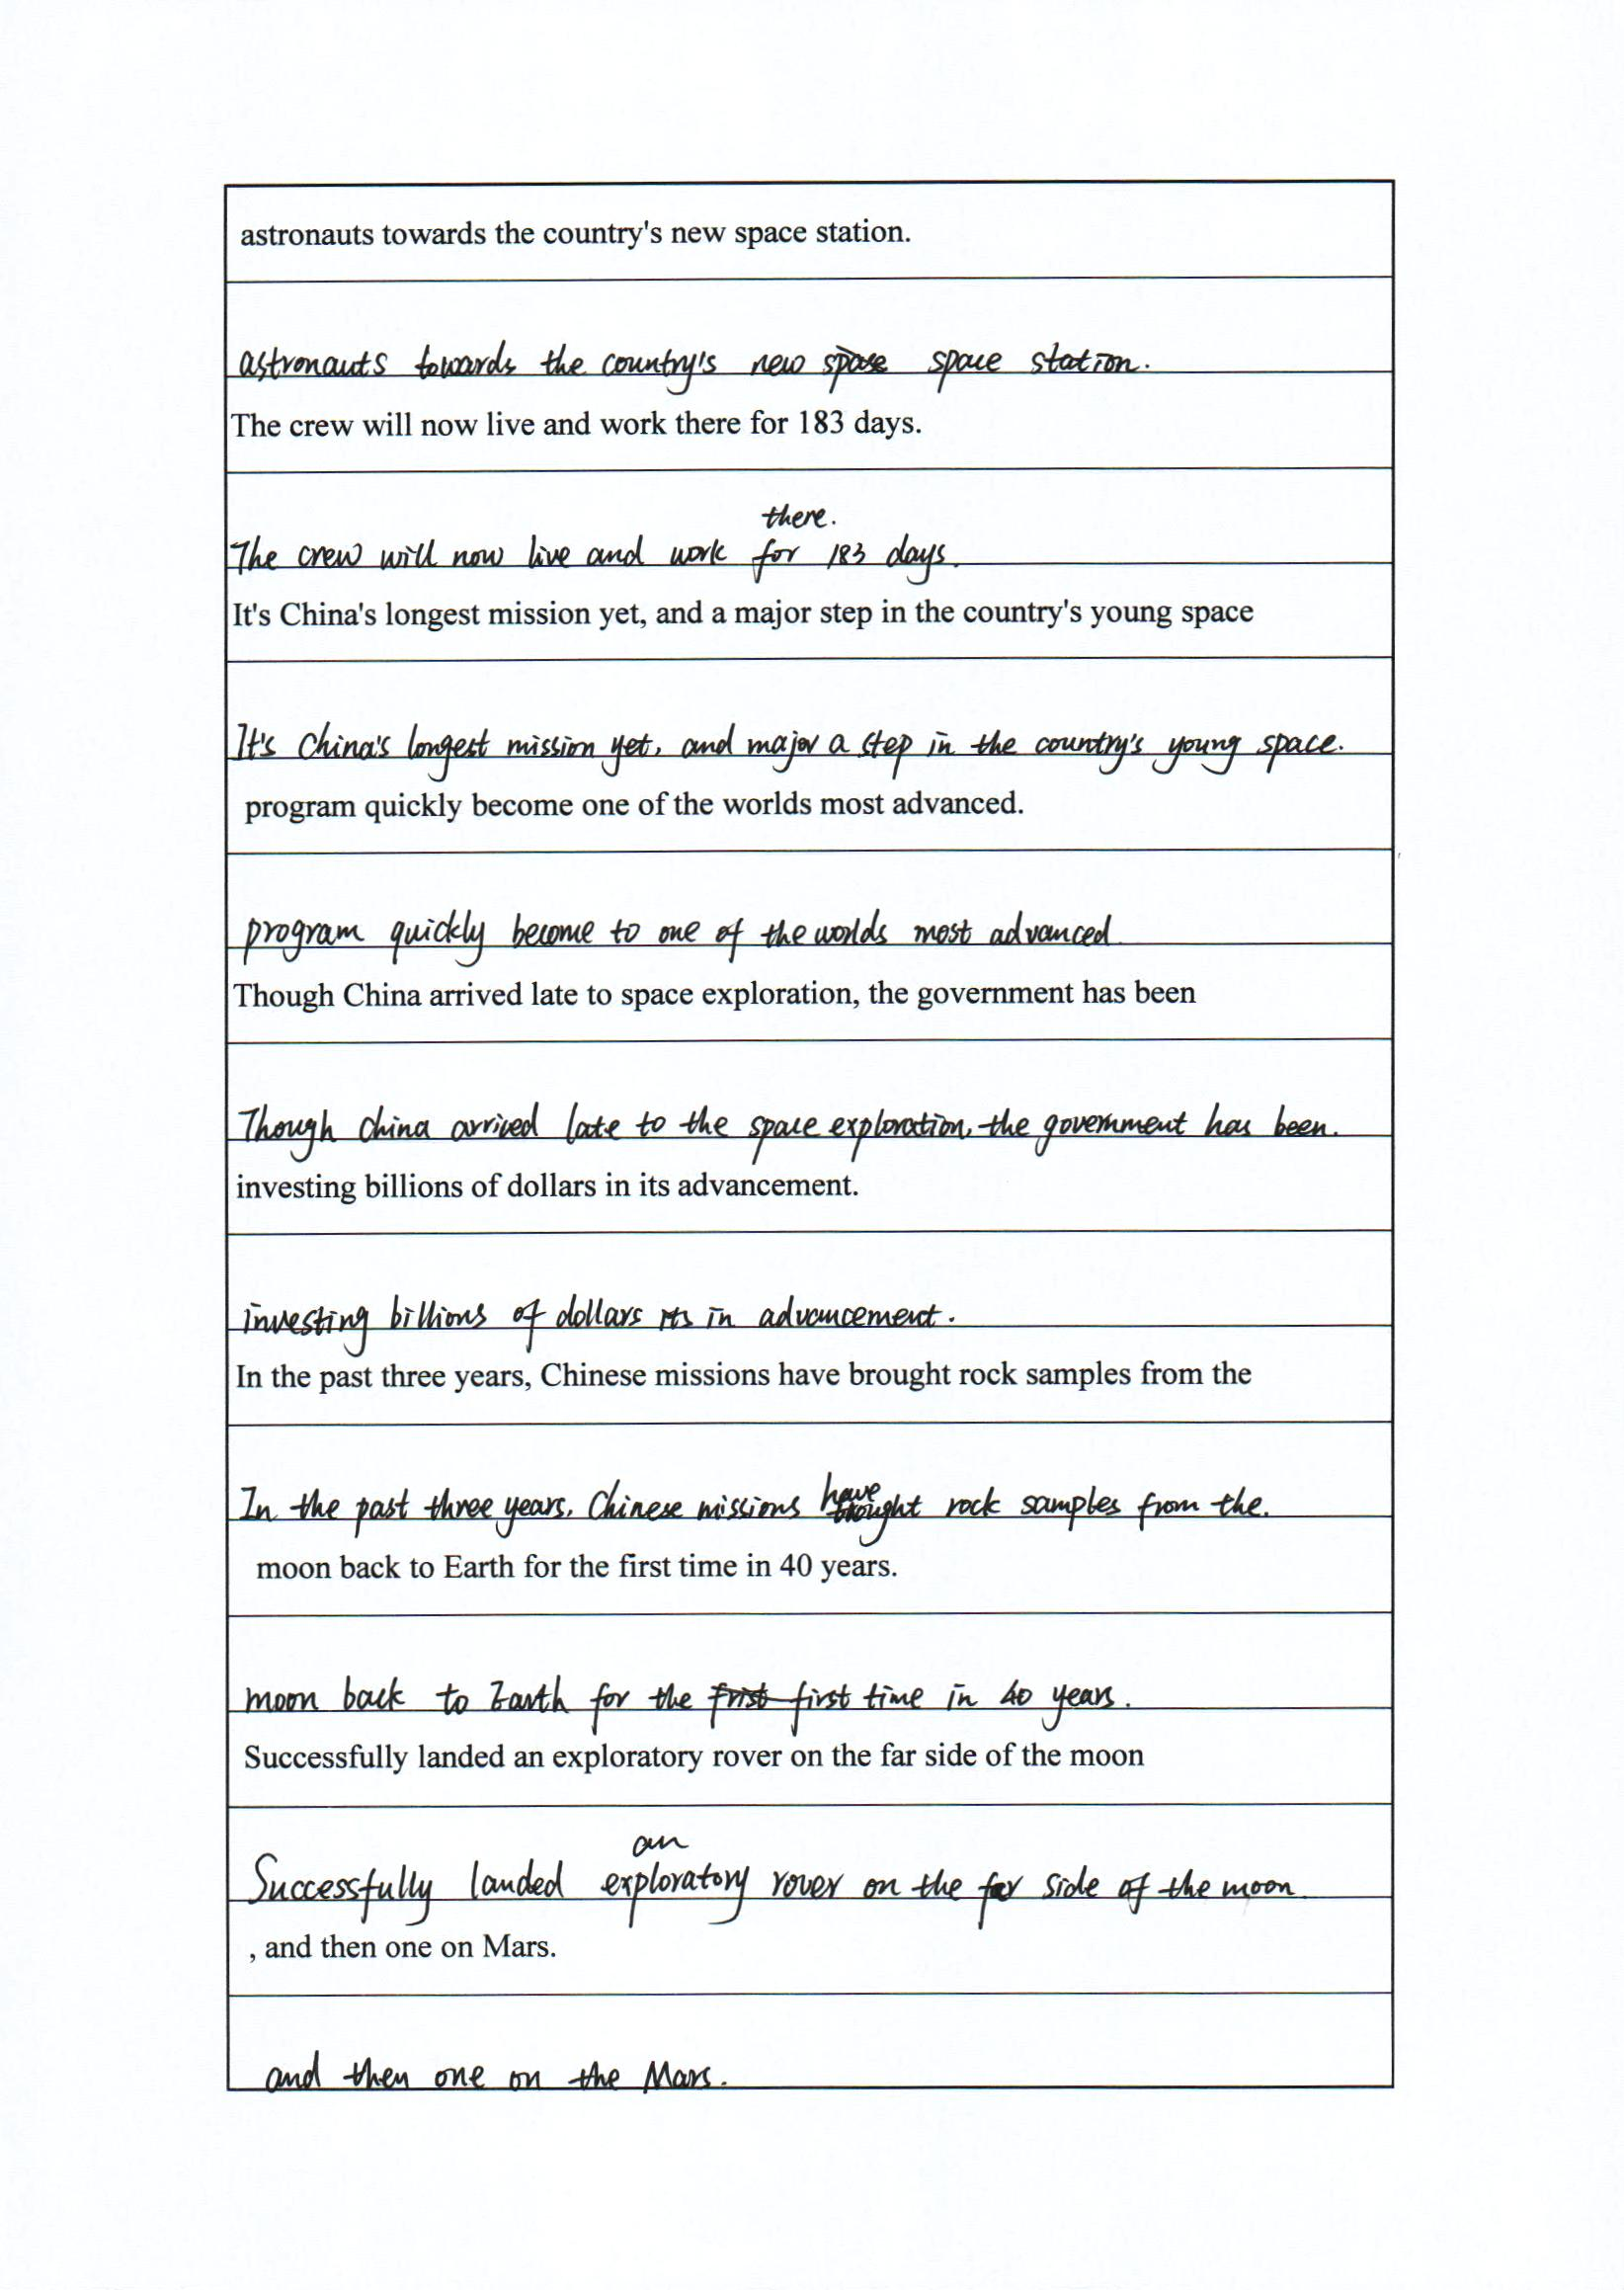 astronauts towards the country's new space station.
astronauts towards the country's new space space station.
The crew will now live and work there for 183 days.
there.
The crew will now live and work for 183 days.
It's China's longest mission yet, and a major step in the country's young space
It's China's longest mission yet, and major a step in the country's young space.
program quickly become one of the worlds most advanced.
program quickly become to one of the worlds most advanced.
Though China arrived late to space exploration, the government has been
Though China arrived late to the space exploration, the government has been.
investing billions of dollars in its advancement.
investing billions of dollars its in advancement.
In the past three years, Chinese missions have brought rock samples from the
In the past three years, Chinese missions have brought rock samples from the.
moon back to Earth for the first time in 40 years.
moon back to Earth for the frist first time in 40 years.
Successfully landed an exploratory rover on the far side of the moon
an
Successfully landed exploratory rover on the far side of the moon
, and then one on Mars.
and then one on the Mars.